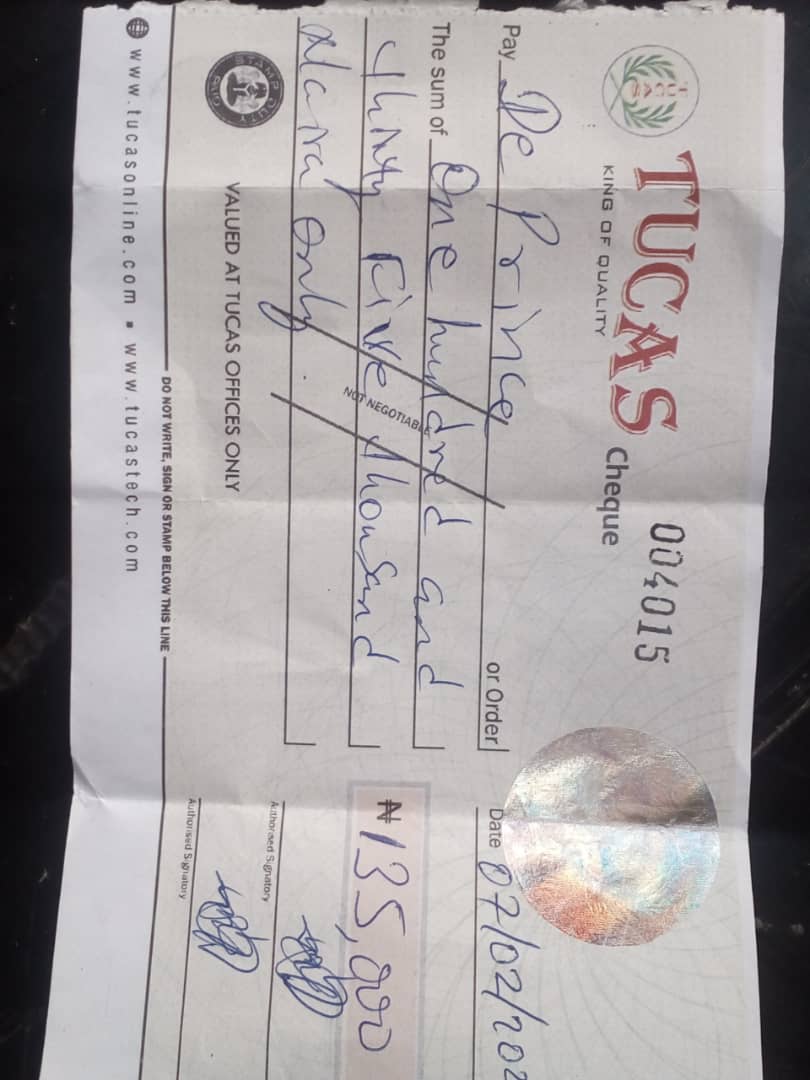 TUCAS Cheque 004015
KING OF QUALITY
TUCAS
Pay De Prince or Order Date 07/02/202
The sum of One hundred and
thirty Five thousand ₦135,000
Naira only.
NOT NEGOTIABLE
STAMP DUTY
VALUED AT TUCAS OFFICES ONLY
Authorised Signatory
Authorised Signatory
DO NOT WRITE, SIGN OR STAMP BELOW THIS LINE
www.tucasonline.com ▪ www.tucastech.com